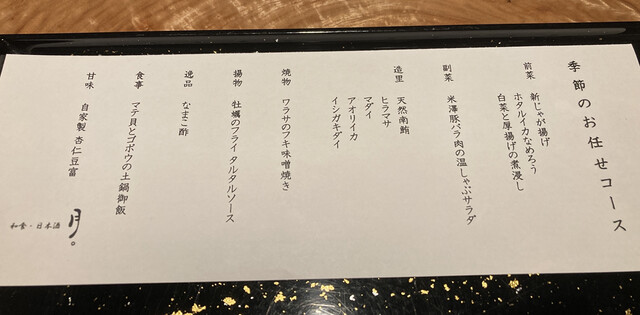 季節のお任せコース
前菜 新じゃが揚げ
ホタルイカなめろう
白菜と厚揚げの煮浸し
副菜 米澤豚バラ肉の温しゃぶサラダ
造里 天然南鮪
ヒラマサ
マダイ
アオリイカ
イシガキダイ
焼物 ワラサのフキ味噌焼き
揚物 牡蠣のフライ タルタルソース
逸品 なまこ酢
食事 マテ貝とゴボウの土鍋御飯
甘味 自家製 杏仁豆富
月。
和食・日本酒